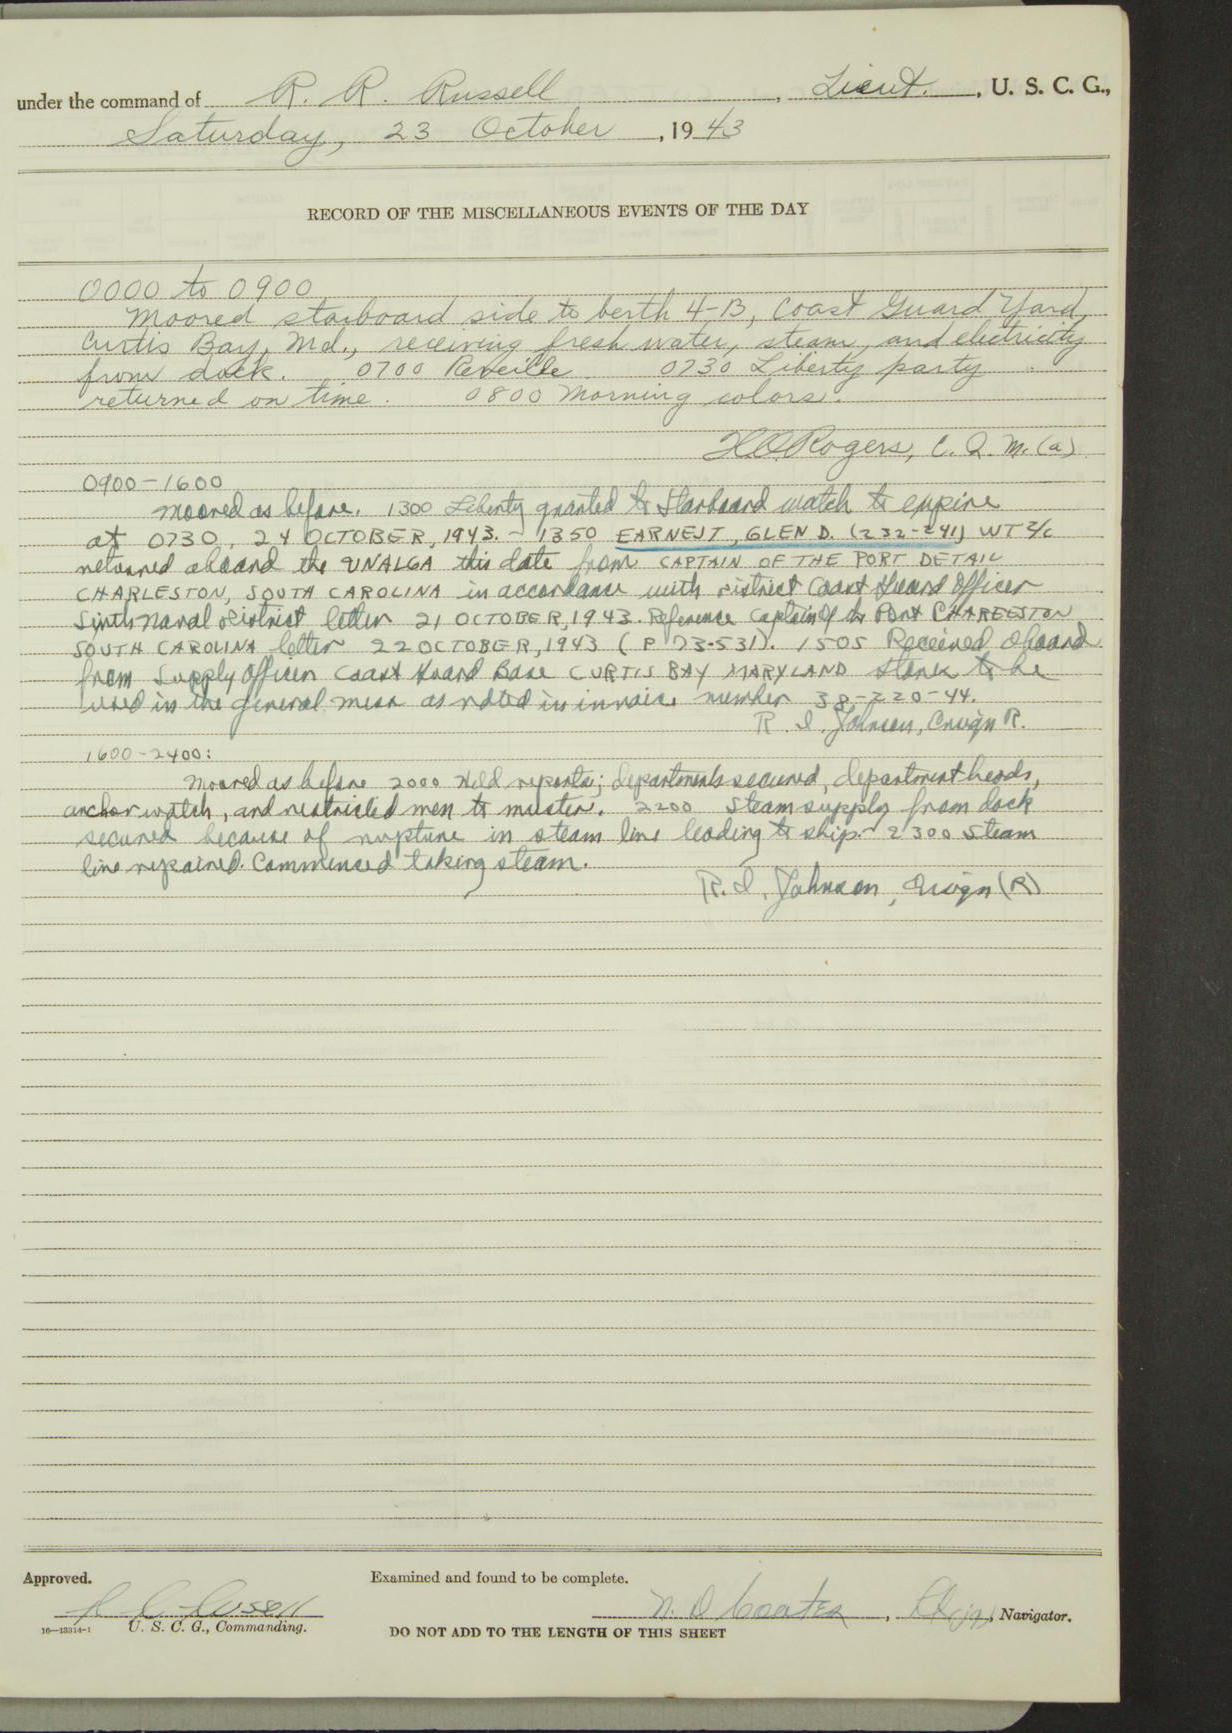 under the command of R. R. Russell, Lieut., U. S. C. G.,
Saturday, 23 October, 1943
RECORD OF THE MISCELLANEOUS EVENTS OF THE DAY
0000 to 0900
Moored starboard side to berth 4-B, Coast Guard Yard,
Curtis Bay, Md., receiving fresh water, steam, and electricity
from dock. 0700 Reveille 0730 Liberty party
returned on time. 0800 Morning colors.
H.O. Rogers, C. Q. M. (a)
0900-1600
Moored as before. 1300 Liberty granted to Starboard watch to expire
at 0730, 24 OCTOBER, 1943. - 1350 EARNEST, GLEN D. (232-241) WT 2/c
returned aboard the UNALGA this date from CAPTAIN OF THE PORT DETAIL
CHARLESTON, SOUTH CAROLINA in accordance with District Coast Guard Officer
Sixth Naval District letter 21 OCTOBER, 1943. Reference Captain of the Port CHARLESTON
SOUTH CAROLINA letter 22 OCTOBER, 1943 (P 73-531). 1505 Received aboard
from Supply Officer Coast Guard Base CURTIS BAY MARYLAND stores to be
used in the general mess as noted in invoice number 38-220-44.
R. I. Johnson, Ensign R.
1600-2400:
Moored as before 2000 Held reports; departments secured, department heads,
anchor watch, and restricted men to muster. 2200 Steam supply from dock
secured because of rupture in steam line leading to ship. - 2300 Steam
line repaired. Commenced taking steam.
R. I. Johnson, Ensign (R)
Approved. Examined and found to be complete.
R R Russell N. D Coates, Lt(jg), Navigator.
16-13314-1 U. S. C. G., Commanding.
DO NOT ADD TO THE LENGTH OF THIS SHEET